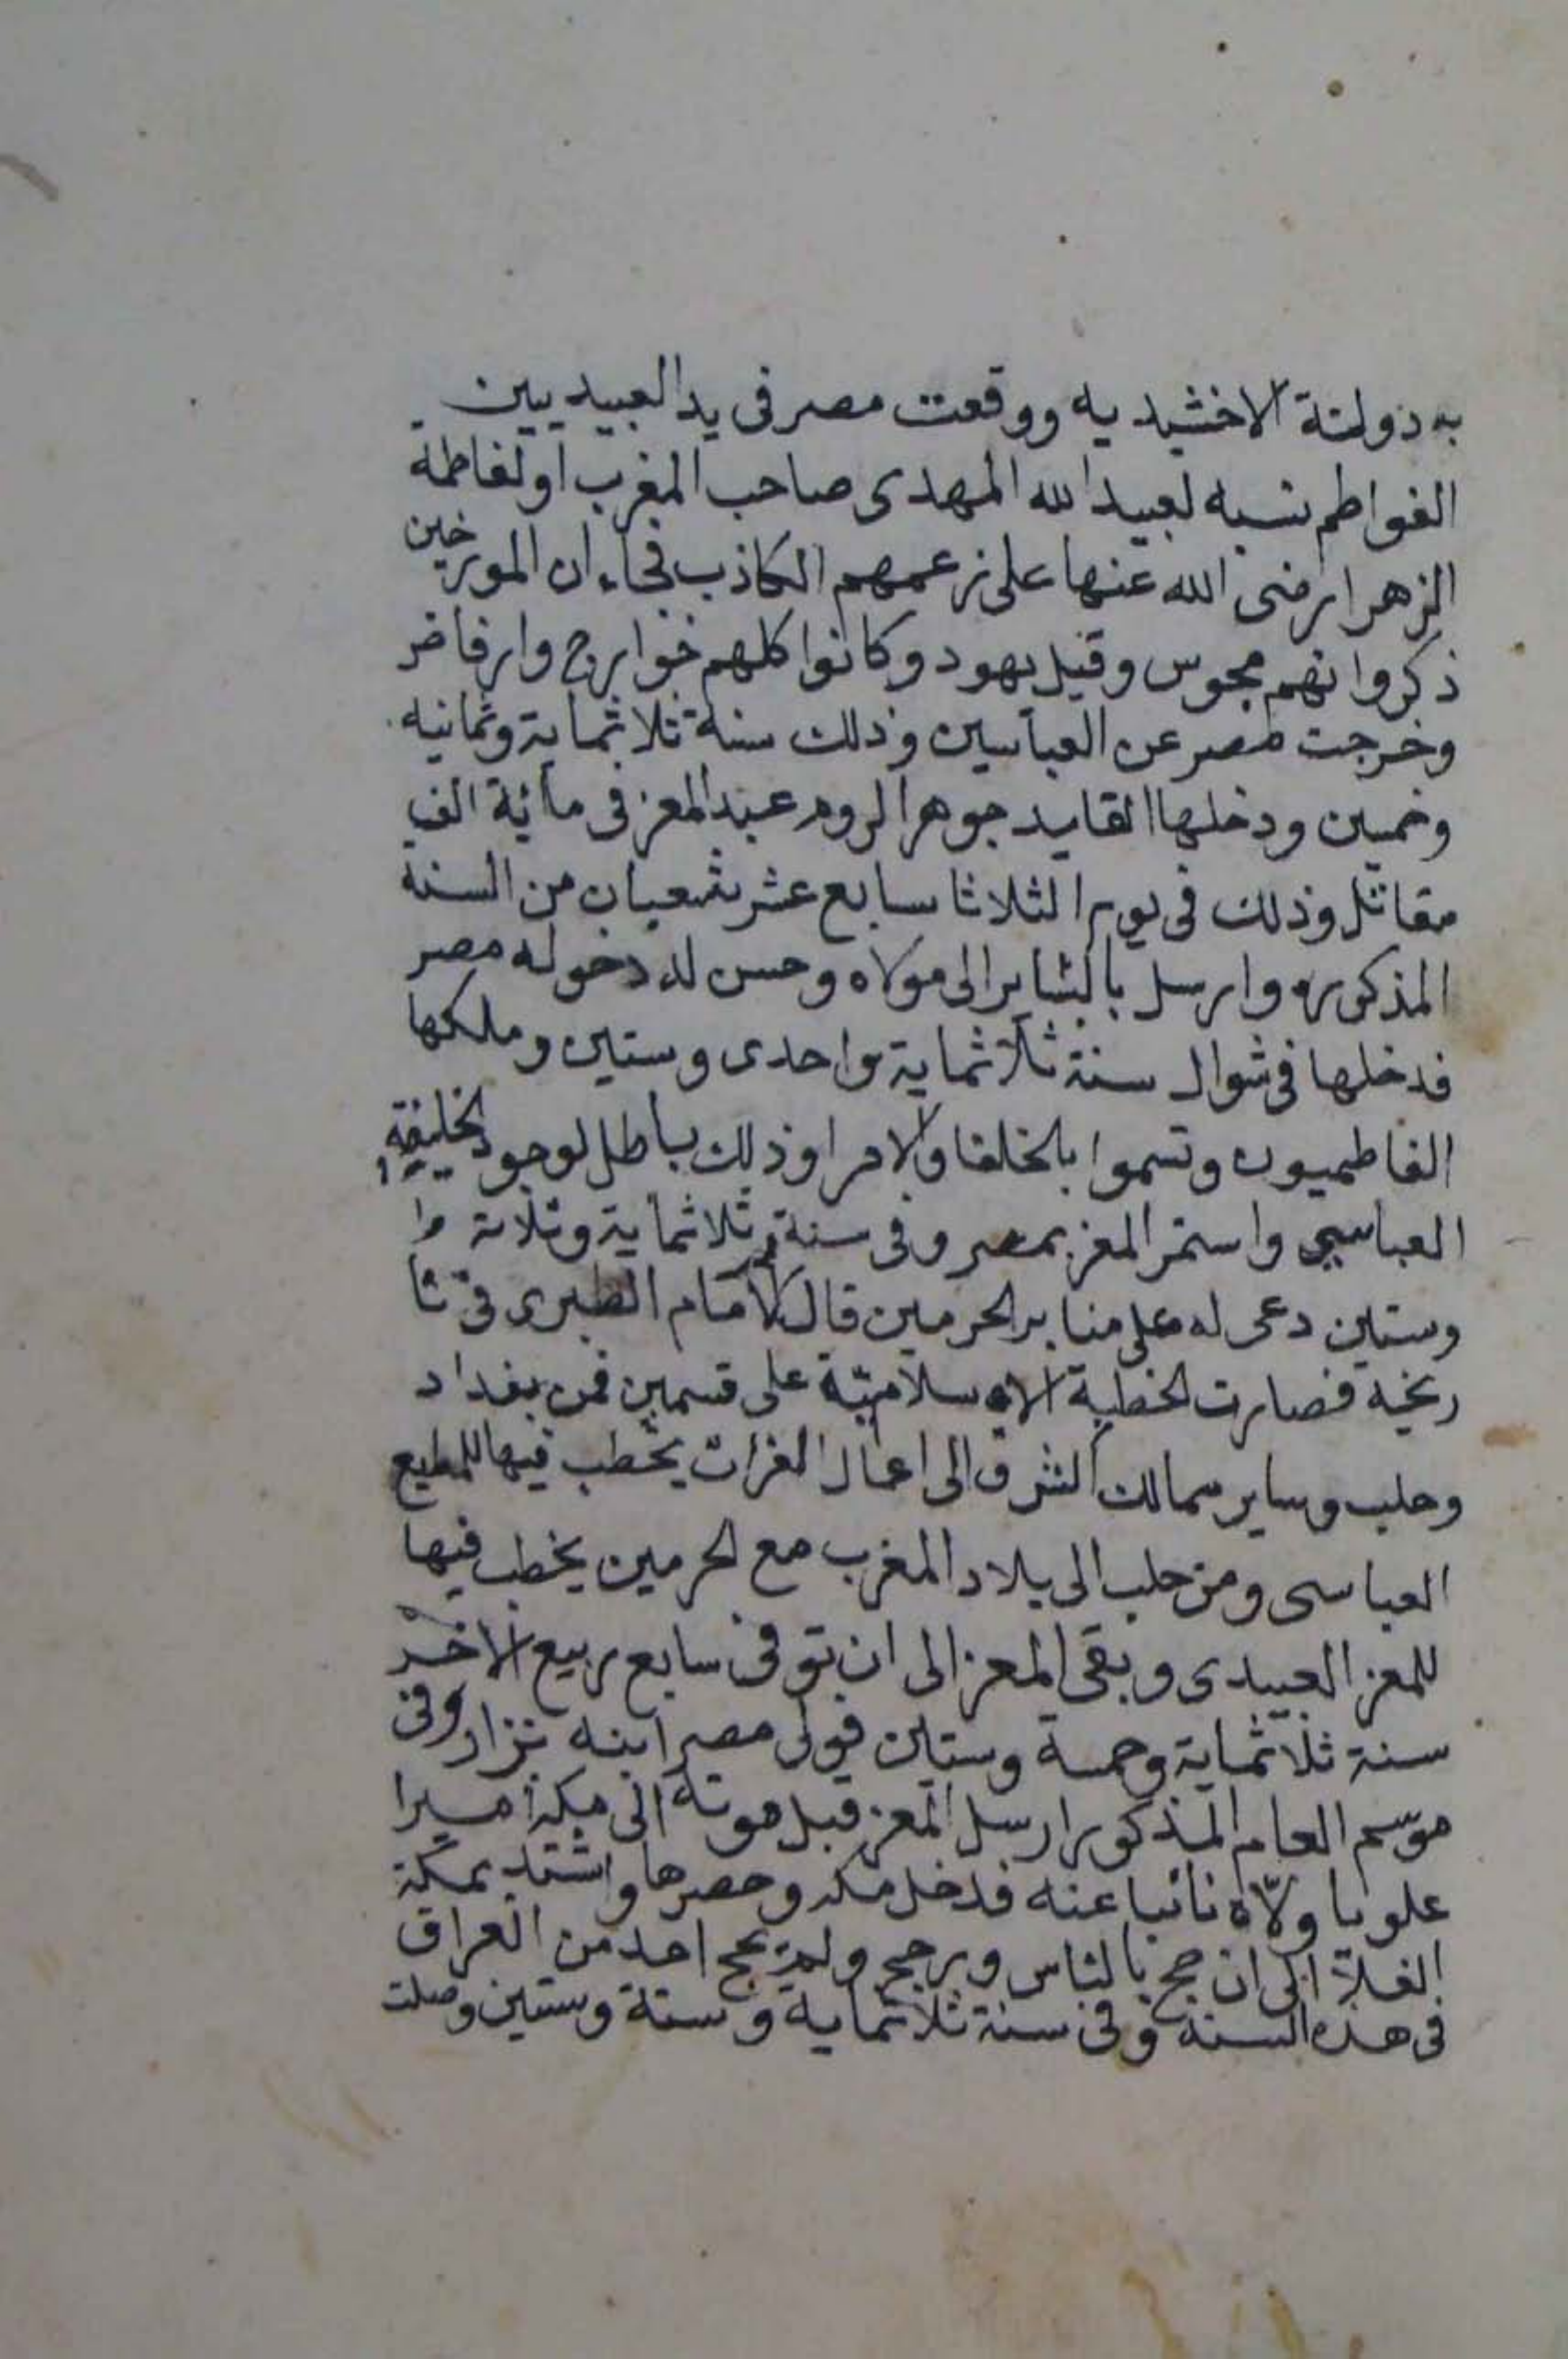 به دولتة الاخشيديه ووقعت مصر فى يد العبيديين
الفواطم نسبه لعبيد الله المهدى صاحب المغرب او لفاطمة
الزهرا رضى الله عنها على زعمهم الكاذب فجاء ان المورخين
ذكروا انهم مجوس وقيل يهود وكانوا كلهم خوارج وارفاض
وخرجت مصر عن العباسين وذلك سنة ثلاثماية وثمانيه
وخمسين ودخلها القايد جوهر الروم عبد المعز فى مائة الف
مقاتل وذلك فى يوم الثلاثا سابع عشر شعبان من السنة
المذكوره وارسل بالبشاير الى مولاه وحسن له دخوله مصر
فدخلها فى شوال سنة ثلاثماية واحدى وستين وملكها
الفاطميون وتسموا بالخلفا والامرا وذلك باطل لوجود الخليفة
العباسى واستمر المعز بمصر وفى سنة ثلاثماية وثلاثة وا
وستين دعى له على منابر الحرمين قال الامام الطبرى فى تا
ريخه فصارت الخطبة الاسلامية على قسمين فمن بغداد
وحلب وساير ممالك الشرق الى اعمال الفرات يخطب فيها للمطيع
العباسى ومن حلب الى بلاد المغرب مع الحرمين يخطب فيها
للمعز العبيدى وبقى المعز الى ان توفى سابع ربيع الاخر
سنة ثلاثماية وخمسة وستين فولى مصر ابنه نزار وفى
موسم العام المذكور ارسل المعز قبل موته الى مكة اميرا
علويا ولاّه نائبا عنه فدخل مكه وحصرها واشتد بمكة
الغلا الى ان حج بالناس ورجع ولم يحج احد من العراق
فى هذه السنة وفى سنة ثلاثماية وستة وستين وصلت